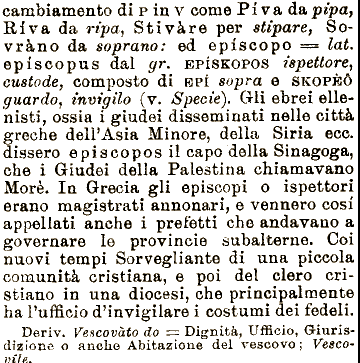 cambiamento di P in V come Píva da pipa,
Ríva da ripa, Stivàre per stipare, So-
vràno da soprano: ed epíscopo = lat.
episcopus dal gr. EPÍSKOPOS ispettore,
custode, composto di EPÍ sopra e SKOPÈÔ
guardo, invigilo (v. Specie). Gli ebrei elle-
nisti, ossia i giudei disseminati nelle città
greche dell'Asia Minore, della Siria ecc.
dissero episcopos il capo della Sinagoga,
che i Giudei della Palestina chiamavano
Morè. In Grecia gli episcopi o ispettori
erano magistrati annonari, e vennero cosí
appellati anche i prefetti che andavano a
governare le provincie subalterne. Coi
nuovi tempi Sorvegliante di una piccola
comunità cristiana, e poi del clero cri-
stiano in una diocesi, che principalmente
ha l'ufficio d'invigilare i costumi dei fedeli.
Deriv. Vescovàto do = Dignità, Ufficio, Giuris-
dizione o anche Abitazione del vescovo; Vesco-
vile.